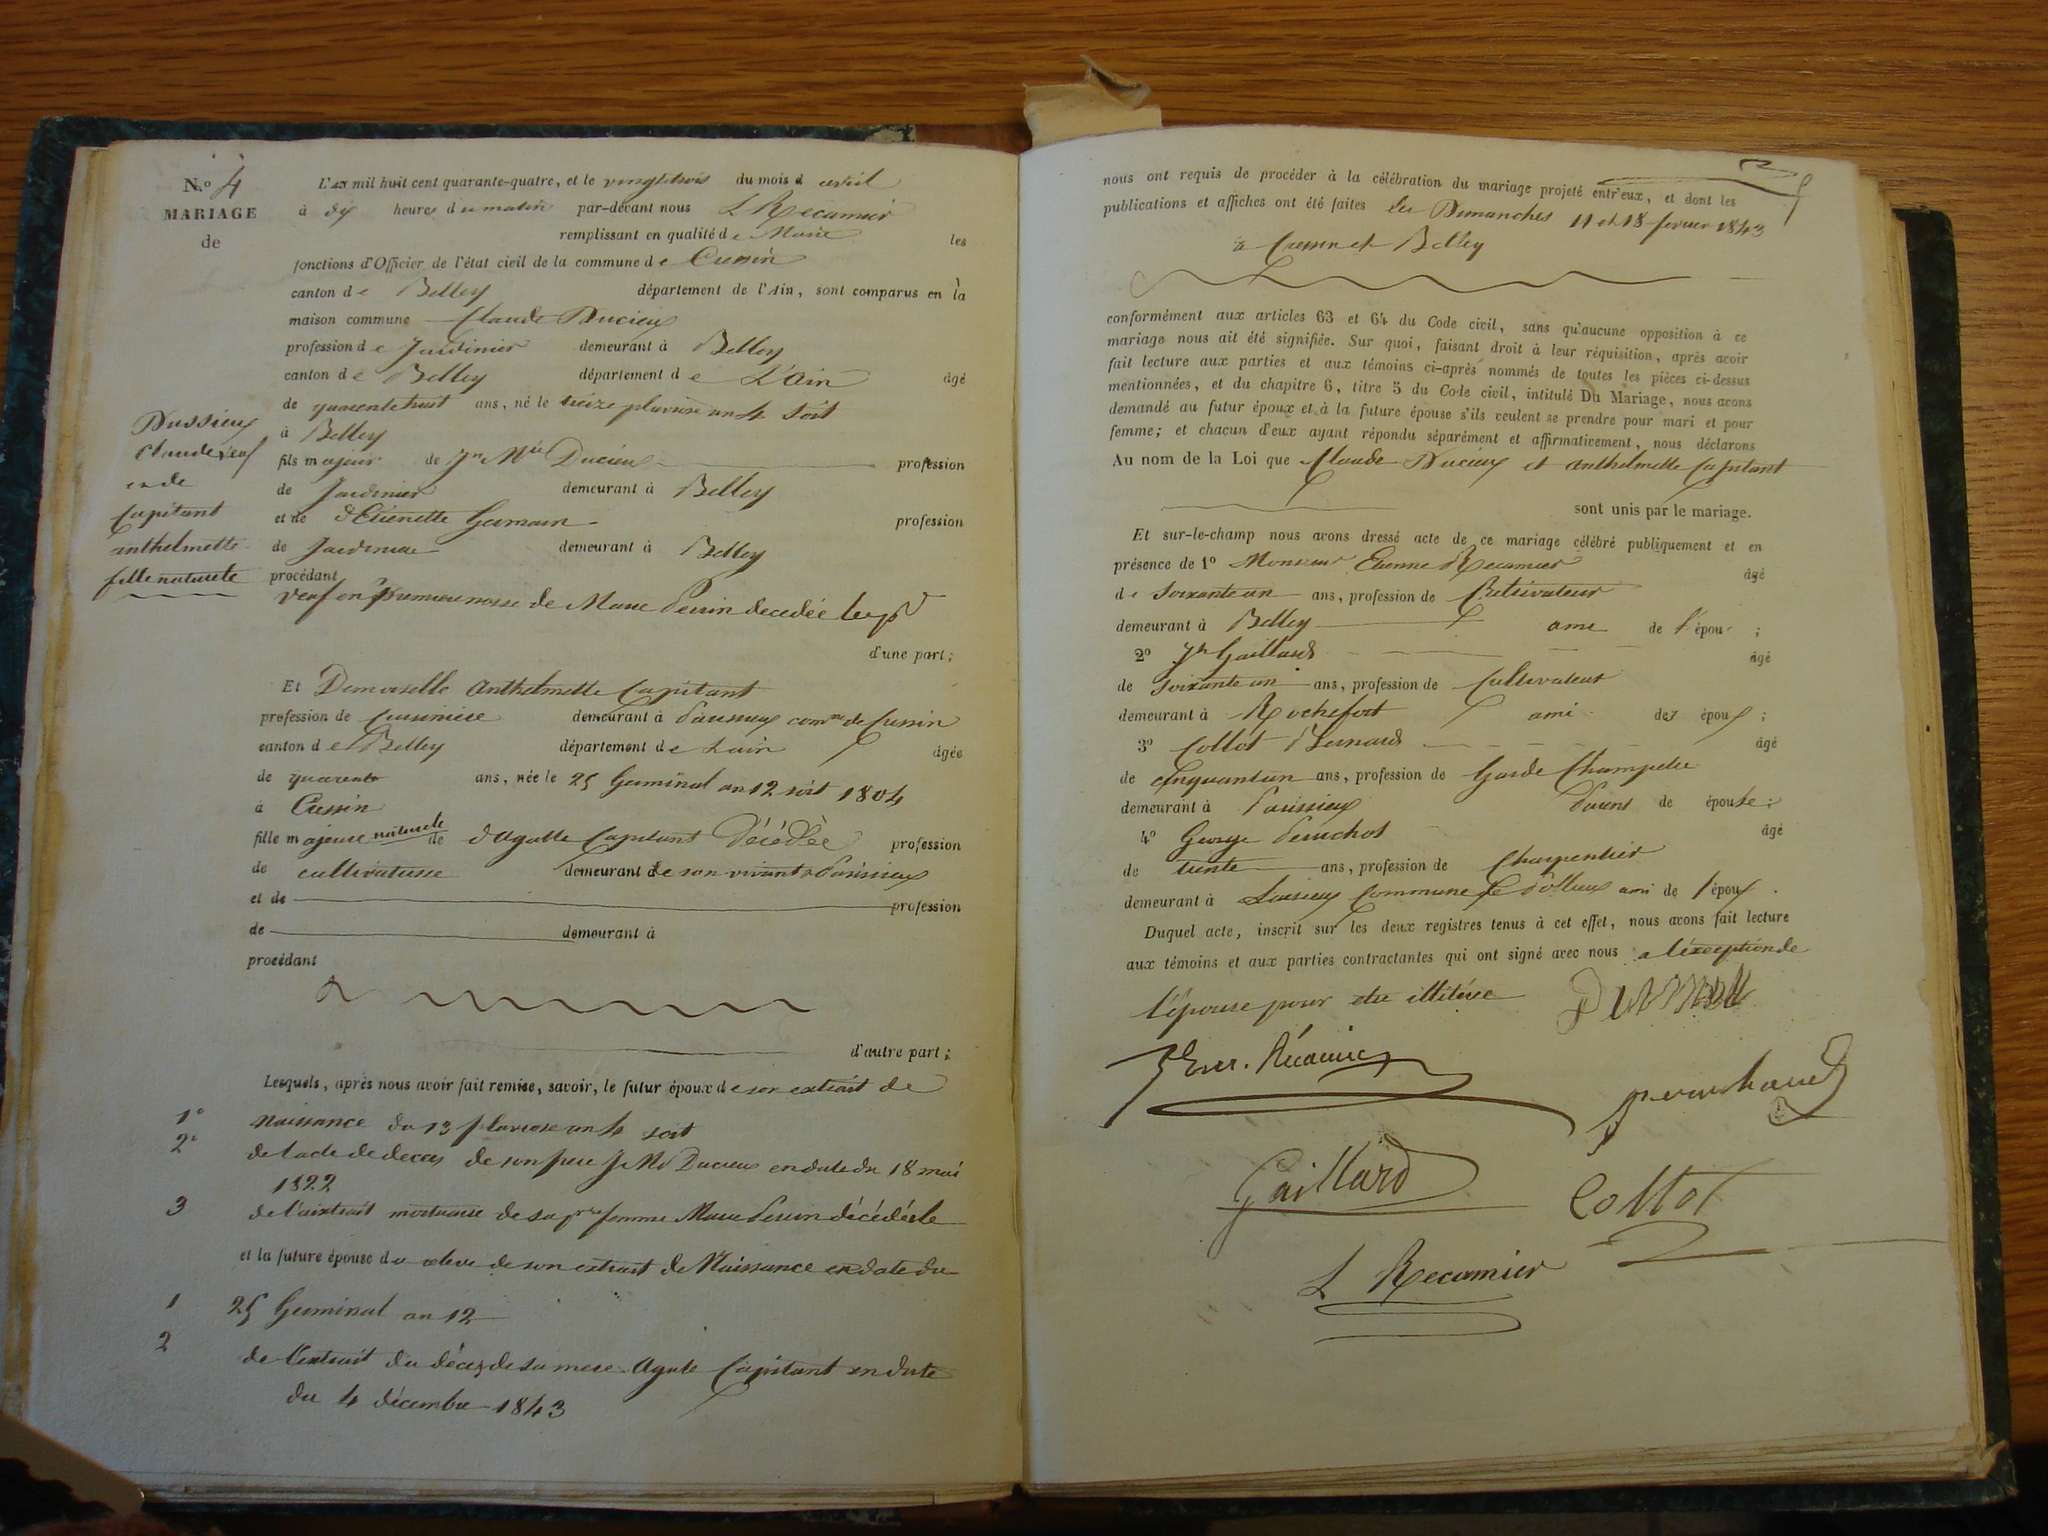 N.o 4
MARIAGE
de
Dussieux
Claude veuf
et de
Capitant
anthelmette
fille naturele
L'AN mil huit cent quarante-quatre, et le vingt trois du mois d avril
à dix heures du matin par-devant nous L Recamier
remplissant en qualité de Maire les
fonctions d'Officier de l'état civil de la commune de Cressin
canton de Belley département de l'Ain, sont comparus en la
maison commune Claude Ducieux
profession de Jardinier demeurant à Belley
canton de Belley département de L'ain âgé
de quarente huit ans, né le treize pluviose an 4 soit
à Belley
fils majeur de Jn Mie Ducieux profession
de Jardinier demeurant à Belley
et de d'Etienette Gamain profession
de Jardiniere demeurant à Belley
procédant
veuf en premiere nosse de Marie Perrin decedée le
d'une part;
Et Demoiselle anthelmette Capitant
profession de Cuisiniere demeurant à Parissieux comne de Cressin
canton de Belley département de Lain âgée
de quarente ans, née le 25 Germinal an 12 soit 1804
à Cressin
fille majeure naturele de d'Agatte Capitant Décédée profession
de cultivatrisse demeurant de son vivant à Parissieux
et de profession
de demeurant à
procédant
d'autre part;
Lesquels, après nous avoir fait remise, savoir, le futur époux de son extrait de
1° naissance du 13 pluviose an 4 soit
2° de l'acte de deces de son pere J Me Ducieux en date du 18 mai
1822
3 de l'aixtrait mortuaire de sa pre femme Marie Perrin décédée le
et la future épouse du releve de son extrait de Naissance en date du
1 25 Germinal an 12
2 de l'extrait du décez de sa mere Agate Capitant en date
du 4 décembre 1843
nous ont requis de procéder à la célébration du mariage projeté entr'eux, et dont les
publications et affiches ont été faites les Dimanches 11 et 18 fevrier 1843
à Cressin et Belley
conformément aux articles 63 et 64 du Code civil, sans qu'aucune opposition à ce
mariage nous ait été signifiée. Sur quoi, faisant droit à leur réquisition, après avoir
fait lecture aux parties et aux témoins ci-après nommés de toutes les pièces ci-dessus
mentionnées, et du chapitre 6, titre 5 du Code civil, intitulé Du Mariage, nous avons
demandé au futur époux et à la future épouse s'ils veulent se prendre pour mari et pour
femme; et chacun d'eux ayant répondu séparément et affirmativement, nous déclarons
Au nom de la Loi que Claude Ducieux et anthelmette Capitant
sont unis par le mariage.
Et sur-le-champ nous avons dressé acte de ce mariage célébré publiquement et en
présence de 1° Monsieur Etienne Recamier âgé
de Soixante un ans, profession de Cultivateur
demeurant à Belley ami de l'épou ;
2° Jh Gaillard âgé
de Soixante un ans, profession de Cultivateur
demeurant à Rochefort ami de l époux ;
3° Collot Bernard âgé
de cinquant un ans, profession de Garde Champetre
demeurant à Parissieux Parent de épouse ;
4° George Peruchot âgé
de trente ans, profession de Charpentier
demeurant à Commune de ami de l'époux .
Duquel acte, inscrit sur les deux registres tenus à cet effet, nous avons fait lecture
aux témoins et aux parties contractantes qui ont signé avec nous a l'éxception de
l'épouse pour etre illitérée
Recamier
Gaillard
Collot
L Recamier